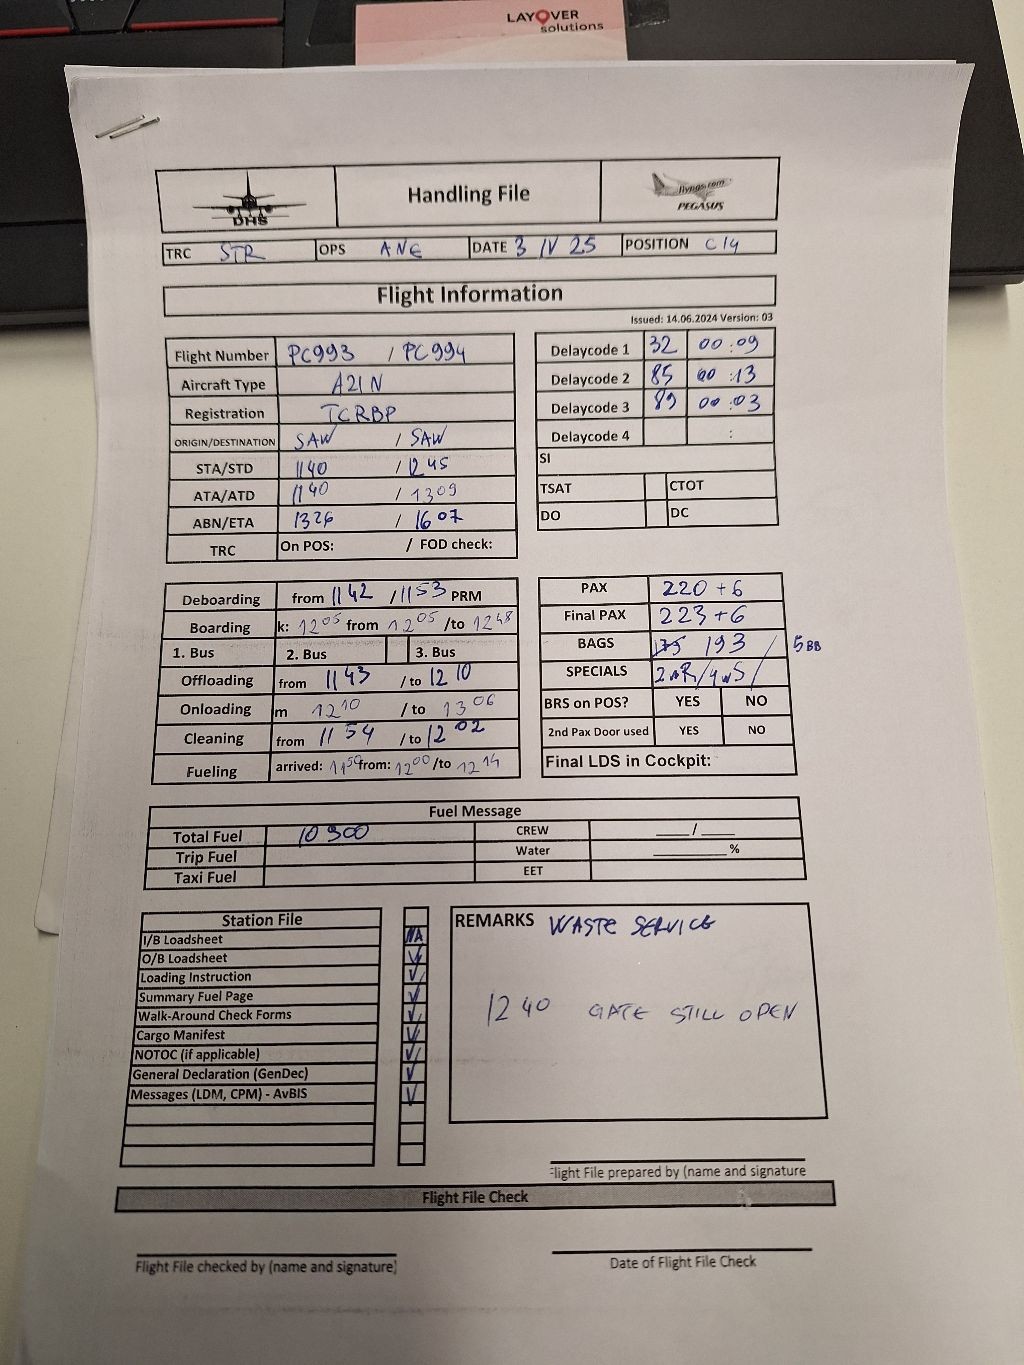 LAYOVER
solutions
DHS
Handling File
flypgs.com
PEGASUS
TRC STR OPS ANE DATE 3 IV 25 POSITION C14
Flight Information
Issued: 14.06.2024 Version: 03
Flight Number PC993 / PC994
Aircraft Type A21N
Registration TCRBP
ORIGIN/DESTINATION SAW / SAW
STA/STD 1140 / 1245
ATA/ATD 1140 / 1309
ABN/ETA 1326 / 1607
TRC On POS: / FOD check:
Delaycode 1 32 00:09
Delaycode 2 85 00:13
Delaycode 3 89 00:03
Delaycode 4 :
SI
TSAT CTOT
DO DC
Deboarding from 1142 / 1153 PRM
Boarding k: 1205 from 1205 /to 1248
1. Bus 2. Bus 3. Bus
Offloading from 1143 / to 1210
Onloading m 1210 / to 1306
Cleaning from 1154 / to 1202
Fueling arrived: 1159 from: 1200 /to 1214
PAX 220+6
Final PAX 223+6
BAGS 175 193 / 5BB
SPECIALS /4WS/
BRS on POS? YES NO
2nd Pax Door used YES NO
Final LDS in Cockpit:
Fuel Message
Total Fuel 10300 CREW ____/____
Trip Fuel Water ________%
Taxi Fuel EET
Station File
I/B Loadsheet NA
O/B Loadsheet ✓
Loading Instruction ✓
Summary Fuel Page ✓
Walk-Around Check Forms ✓
Cargo Manifest ✓
NOTOC (if applicable) ✓
General Declaration (GenDec) ✓
Messages (LDM, CPM) - AvBIS ✓
REMARKS WASTE SERVICE
1240 GATE STILL OPEN
Flight File prepared by (name and signature
Flight File Check
Flight File checked by (name and signature)
Date of Flight File Check